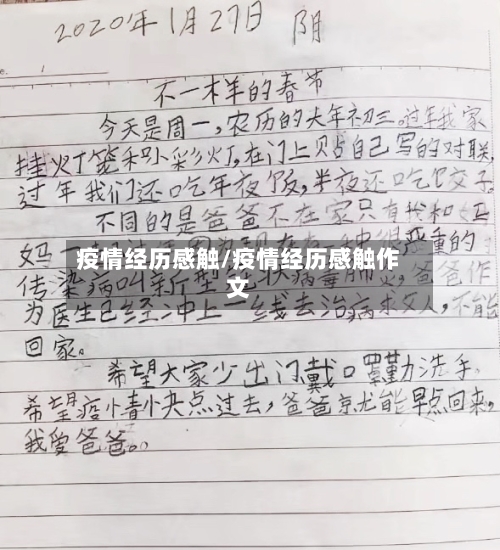 2020年1月27日 阴
不一样的春节
今天是周一,农历的大年初三。过年我家
挂灯笼和小彩灯,在门上贴自己写的对联,
过年我们还吃年夜饭,半夜还吃饺子。
不同的是爸爸不在家只有我和
妈 严重的
疫情经历感触/疫情经历感触作
文
传染病叫新型 状病毒肺炎,爸爸作
为医生已经冲上一线去治病救人,不能
回家。
希望大家少出门戴口罩勤洗手,
希望疫情快点过去,爸爸就能早点回来,
我爱爸爸。